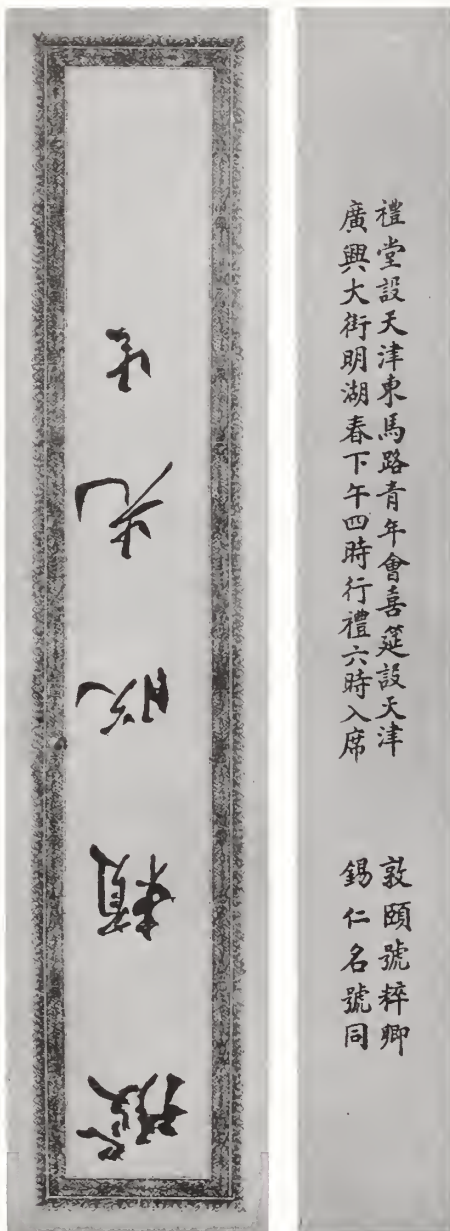 禮堂設天津東馬路青年會喜筵設天津
廣興大街明湖春下午四時行禮六時入席
敦頤號粹卿
錫仁名號同
賴先生